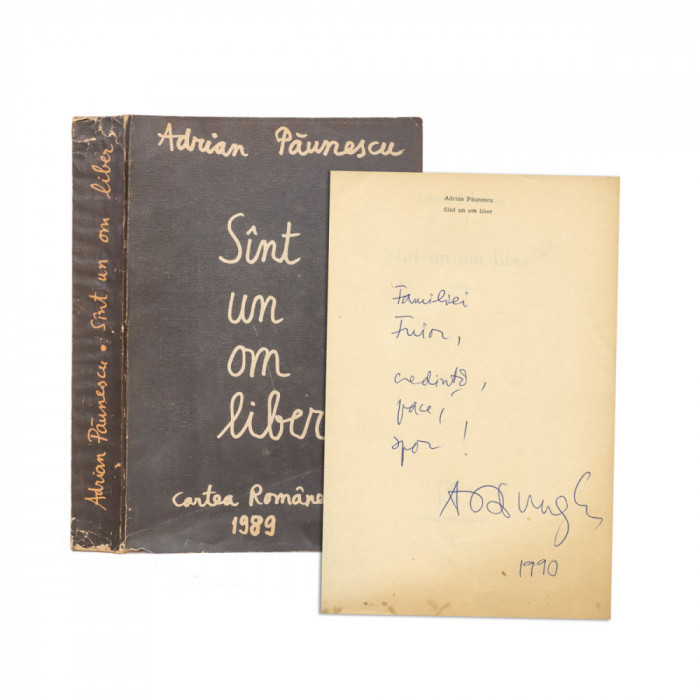 Adrian Păunescu • Sînt un om liber
Adrian Păunescu
Sînt
un
om
liber
Cartea Române
1989
Adrian Păunescu
Sînt un om liber
Sînt un om liber
Familiei
credință,
pace,
spor!
1990